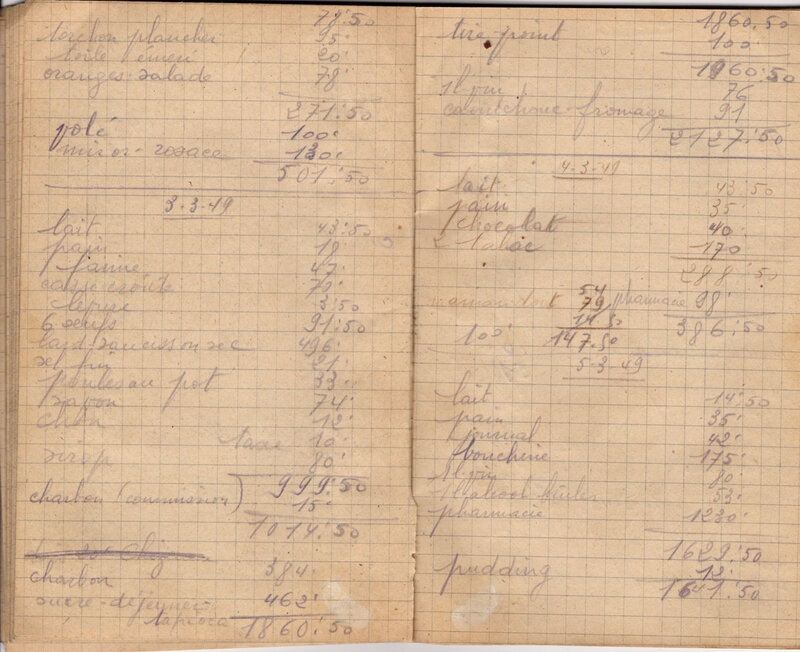 78:50
torchon plancher 95:
toile émeri 20:
oranges salade 78:
271:50
volé 100:
miror - rosace 130:
501:50
3-3-49
lait 43:50
pain 18
farine 47:
casse croute 72:
levure 3:50
6 oeufs 91:50
lard saucisson sec 496:
sel fin 21:
poules au pot 33:
savon 74:
chou 12:
taxe 10:
sirop 80:
999:50
charbon (commission) 15:
1014:50
charbon 384:
sucre - déjeuner 462:
tapioca 1860:50
1860:50
tire-point 100:
1960:50
1l vin 76
caoutchouc - fromage 91
2127:50
4-3-49
lait 43:50
pain 35:
chocolat 40:
tabac 170
288:50
54
79 pharmacie 98:
14.50
386:50
100: 147.50
5-3-49
lait 14:50
pain 35:
journal 42:
boucherie 175:
1l vin 80
1l alcool bruler 53:
pharmacie 1230:
1629:50
pudding 12:
1641:50